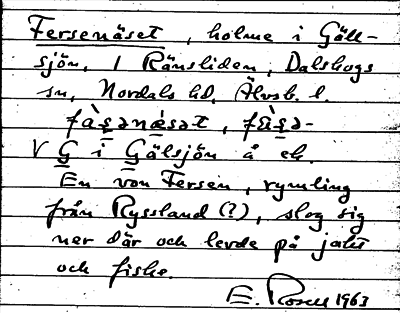 Fersenäset, holme i Gäll-
sjön, / Ränsliden, Dalskogs
sn, Nordals hd, Älvsb. l.
fà̀şənæ̀sət, fà̀şə-
V G i Gälsjön å ek.
En von Fersen, rymling
från Ryssland (?), slog sig
ner där och levde på jakt
och fiske.
E. Rosell 1963